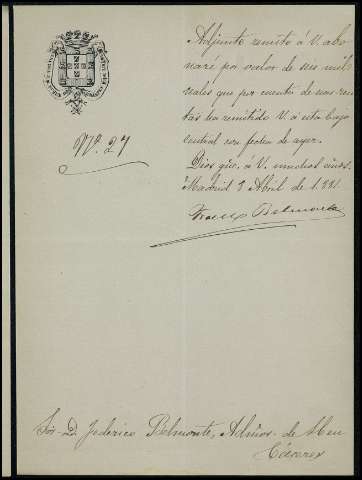 Adjunto remito á V. abo
naré por valor de seis mil
reales que por cuenta de sus ren
tas ha remitido V. á esta Caja
Central con fecha de ayer.
Dios gũe. á V. muchos años.
Madrid 3 Abril de 1881.
Belmonte
Nº. 27
Sor. D. Federico Belmonte, Admor. de
Cáceres